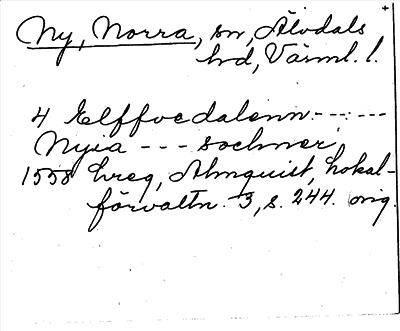 Ny, Norra, sn, Älvdals
hd, Värml. l.
4 Elffvedalenn - - - - - -
Nyia - - - sochner,
1558 Lreg, Almquist, Lokal-
förvaltn. 3, s. 244. orig.